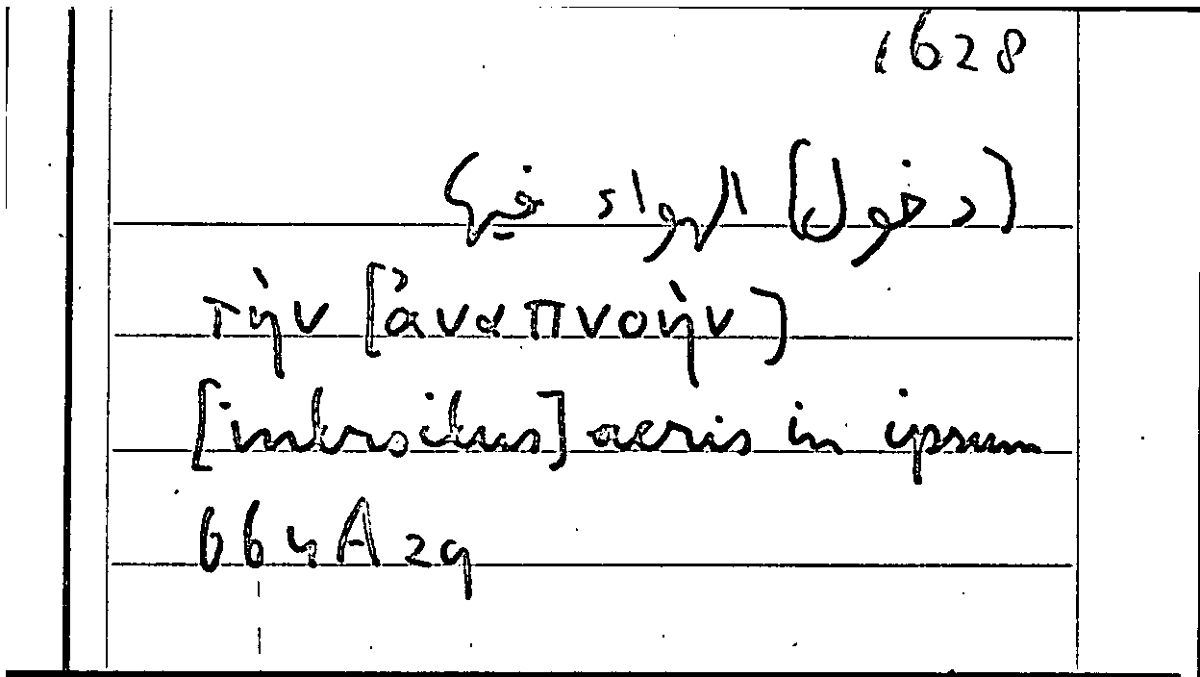 1628
[دخول] الهواء فيه
τὴν [ἀναπνοὴν]
[introitus] aeris in ipsum
664A29